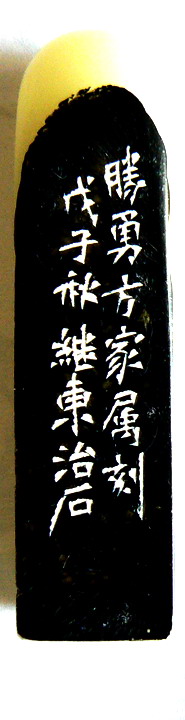 勝勇方家属刻
戊子秋継東治石